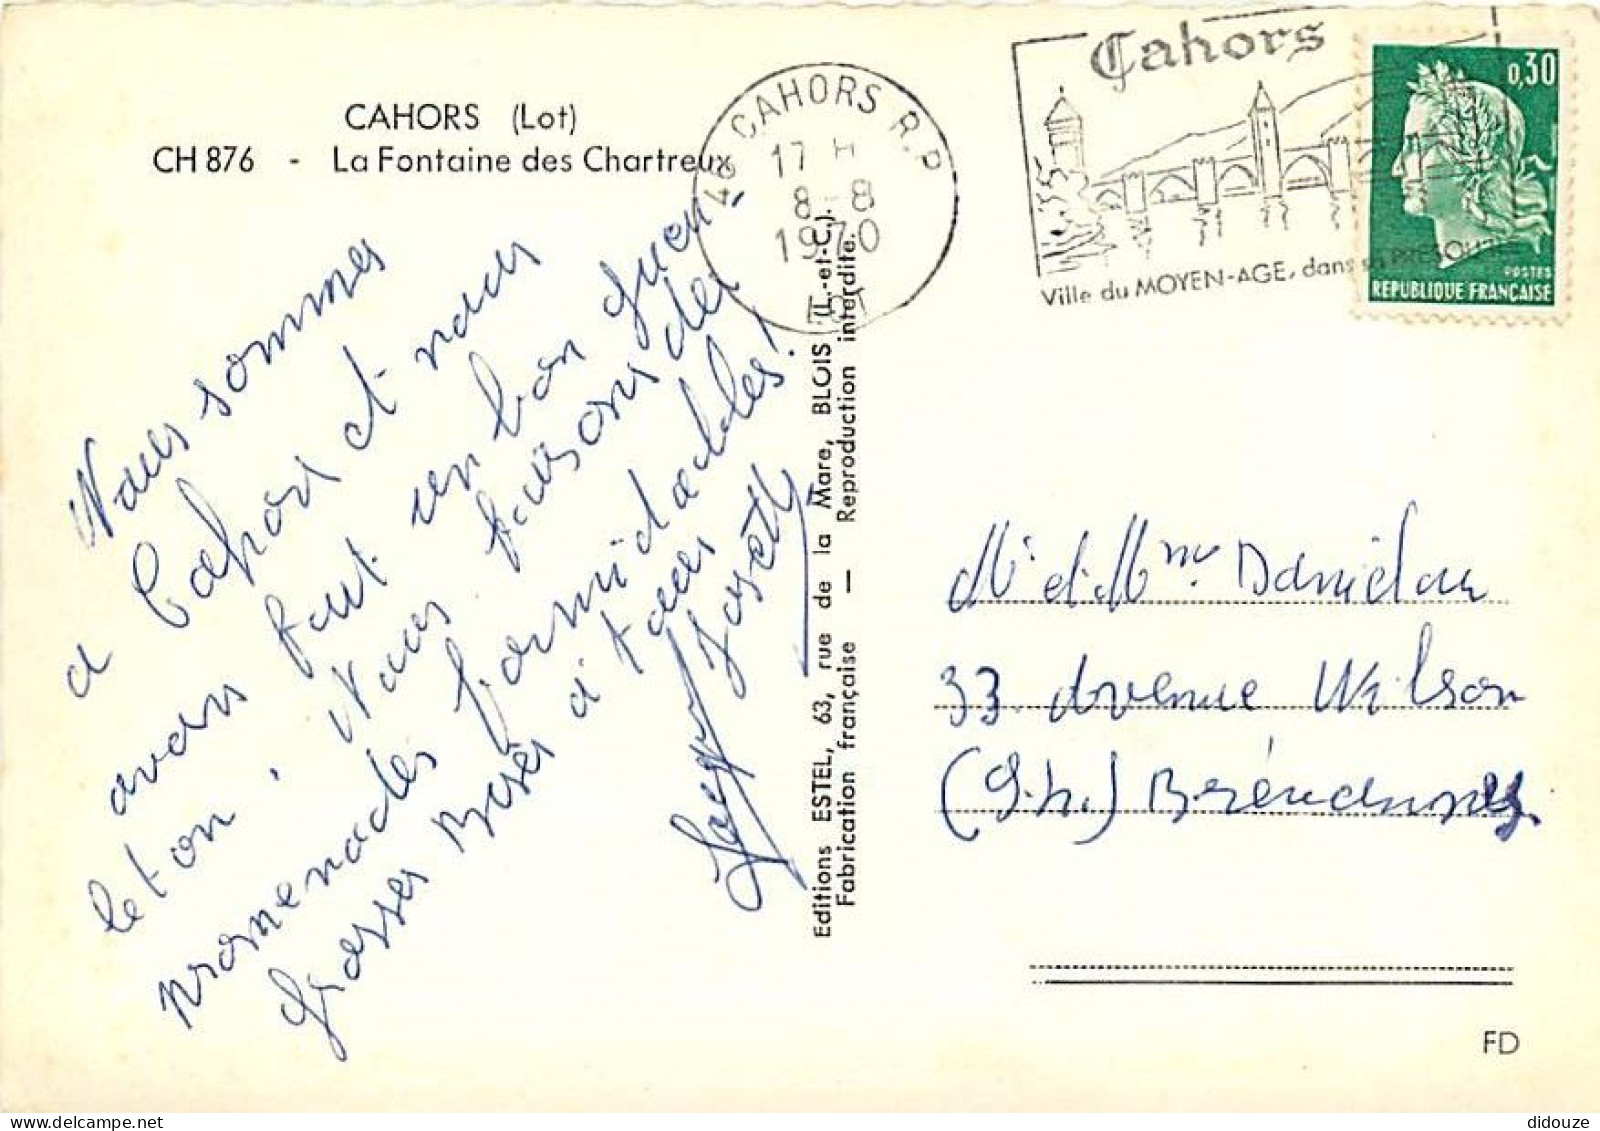 CAHORS (Lot)
CH 876 - La Fontaine des Chartreux
46 CAHORS R.P
17 H
8-8
1970
LOT
Cahors
Ville du MOYEN-AGE, dans sa PRESQU'ILE
0,30
POSTES
REPUBLIQUE FRANÇAISE
Nous sommes
a Cahors et nous
avons fait un bon gueu-
leton, Nous faisons des
promenades formidables!
Grosses Bises à tous
Josette
Editions ESTEL, 63, rue de la Mare, BLOIS (L.-et-C.).
Fabrication française — Reproduction interdite.
Mr et Mme Danielou
33 Avenue Wilson
(S.M.)
FD
didouze